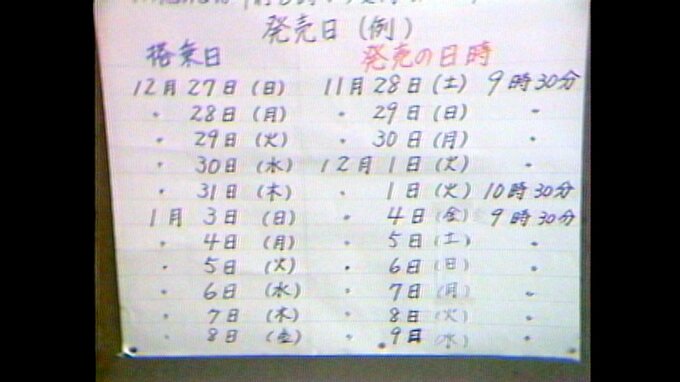 発売日(例)
搭乗日 発売の日時
12月27日(日) 11月28日(土) 9時30分
〃 28日(月) 〃 29日(日) 〃
〃 29日(火) 〃 30日(月) 〃
〃 30日(水) 12月1日(火) 〃
〃 31日(木) 〃 1日(火) 10時30分
1月 3日(日) 〃 4日(金) 9時30分
〃 4日(月) 〃 5日(土) 〃
〃 5日(火) 〃 6日(日) 〃
〃 6日(水) 〃 7日(月) 〃
〃 7日(木) 〃 8日(火) 〃
〃 8日(金) 〃 9日(水) 〃